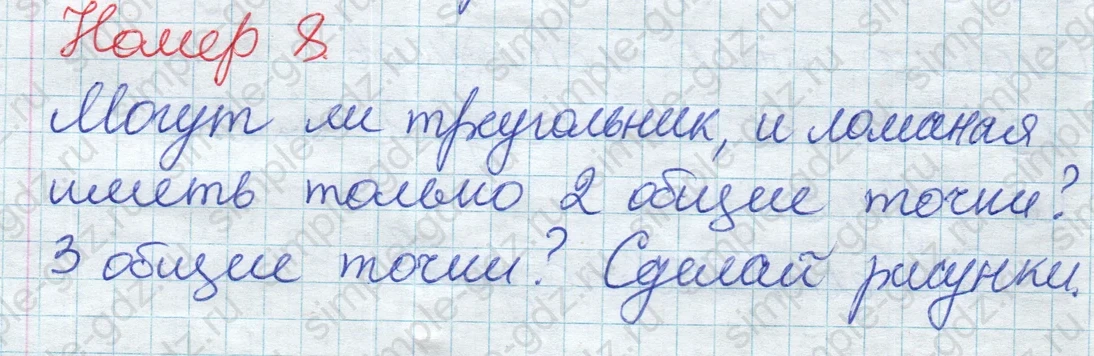 Номер 8.
Могут ли треугольник, и ломаная
иметь только 2 общие точки?
3 общие точки? Сделай рисунки.
simple-gdz.ru